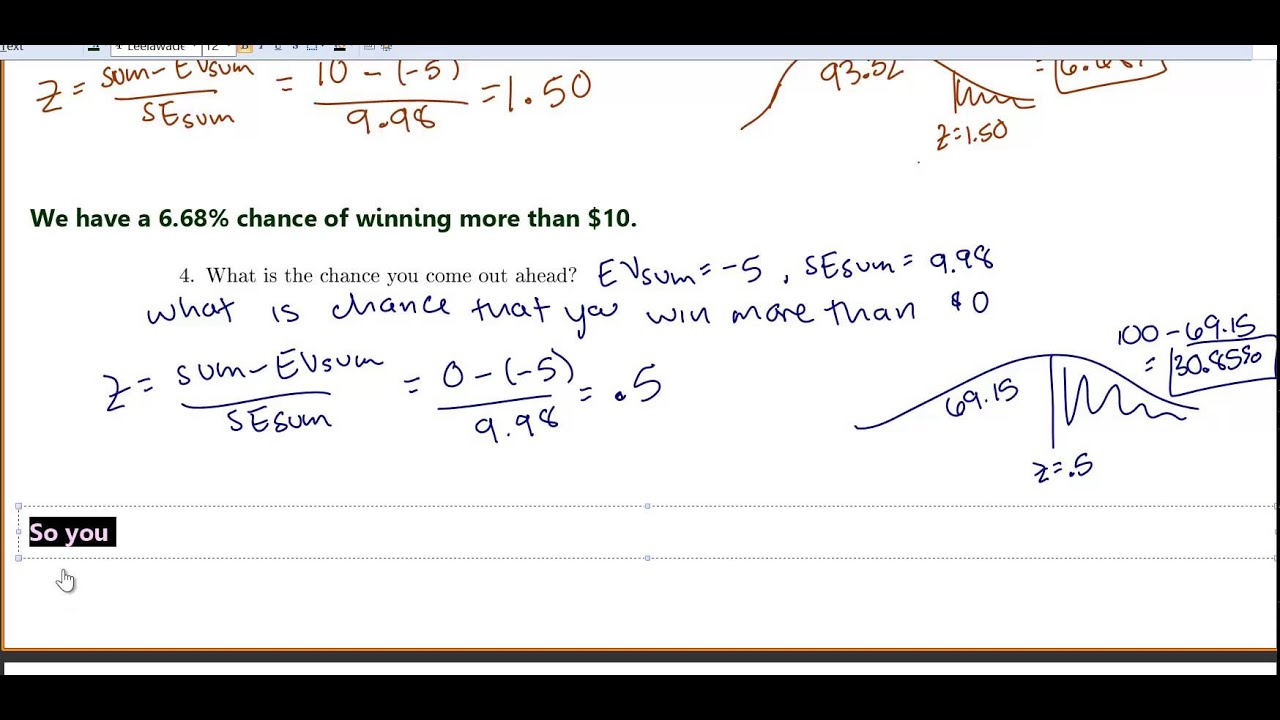 Text Leelawade 12 B I U S
Z = sum - EVsum / SEsum = 10 - (-5) / 9.98 = 1.50
93.32
= 6.68%
z=1.50
We have a 6.68% chance of winning more than $10.
4. What is the chance you come out ahead? EVsum = -5 , SEsum = 9.98
What is chance that you win more than $0
100 - 69.15
= 30.85%
Z = sum - EVsum / SEsum = 0 - (-5) / 9.98 = .5
69.15
z=.5
So you